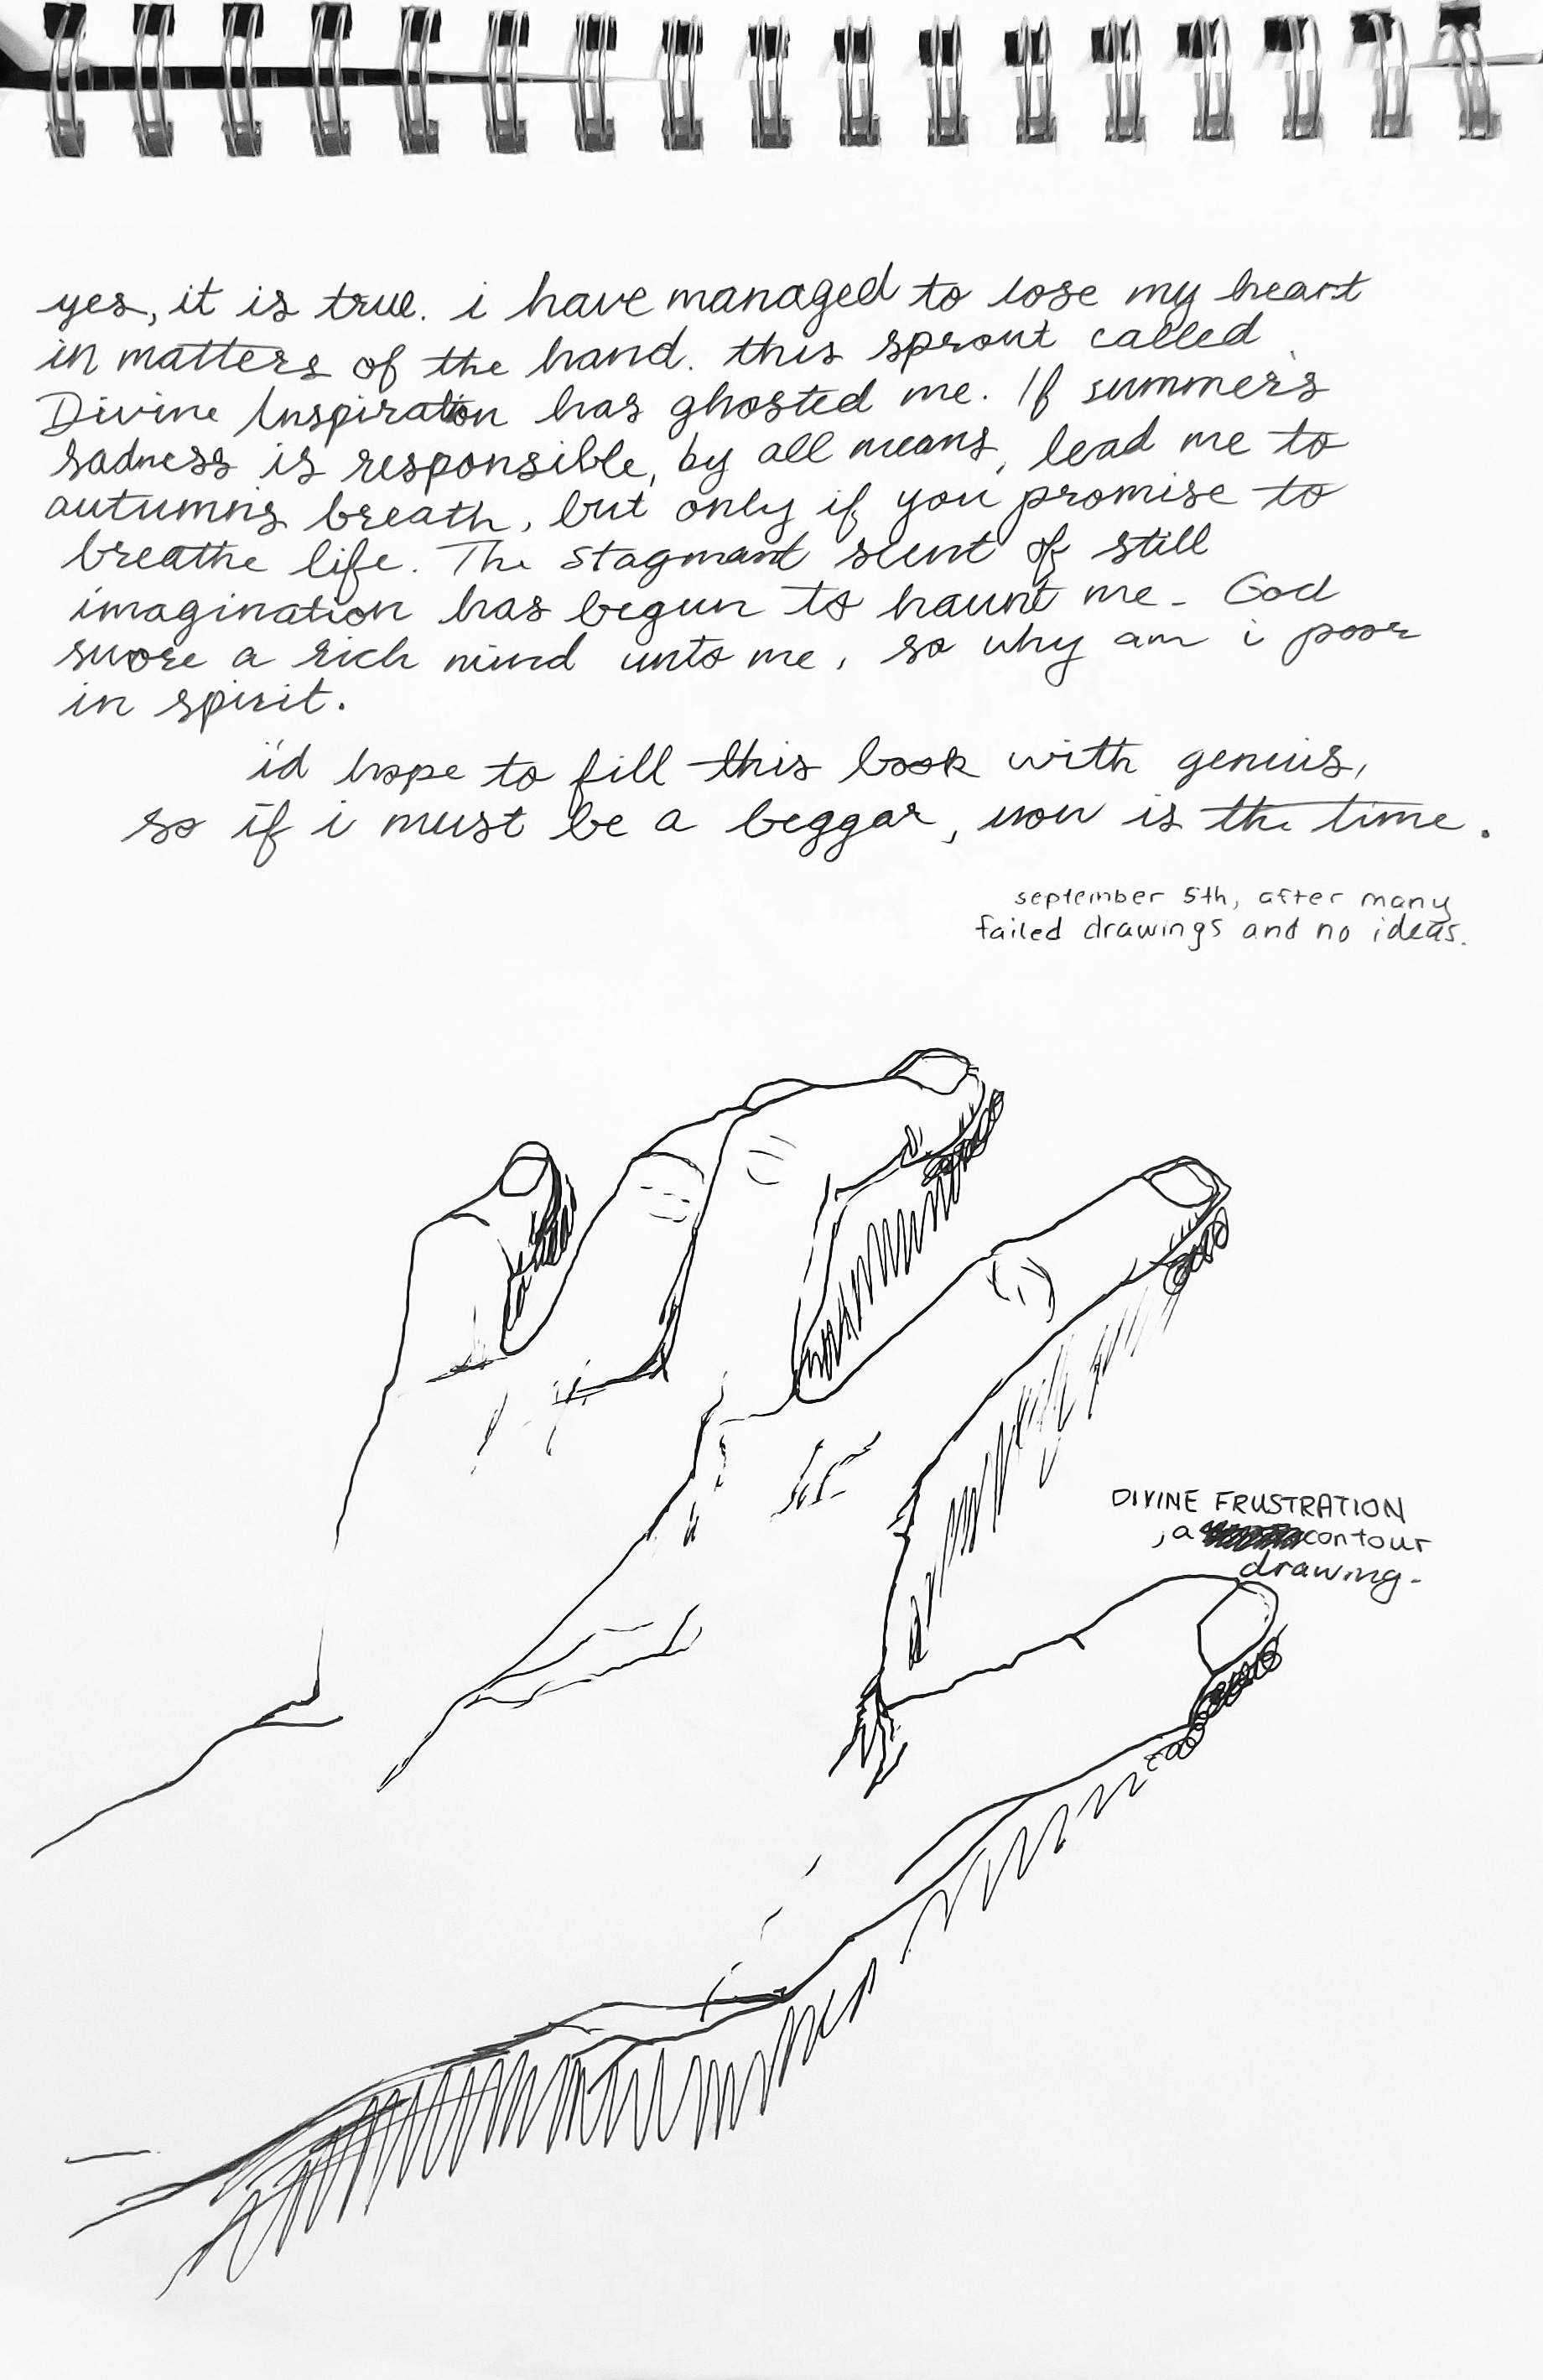 yes, it is true. i have managed to lose my heart
in matters of the hand. this sprout called
Divine Inspiration has ghosted me. If summer's
sadness is responsible, by all means, lead me to
autumn's breath, but only if you promise to
breathe life. The stagnant scent of still
imagination has begun to haunt me. God
swore a rich mind unto me, so why am i poor
in spirit.
i'd hope to fill this book with genius,
so if i must be a beggar, now is the time.
september 5th, after many
failed drawings and no ideas.
DIVINE FRUSTRATION
, a contour
drawing.